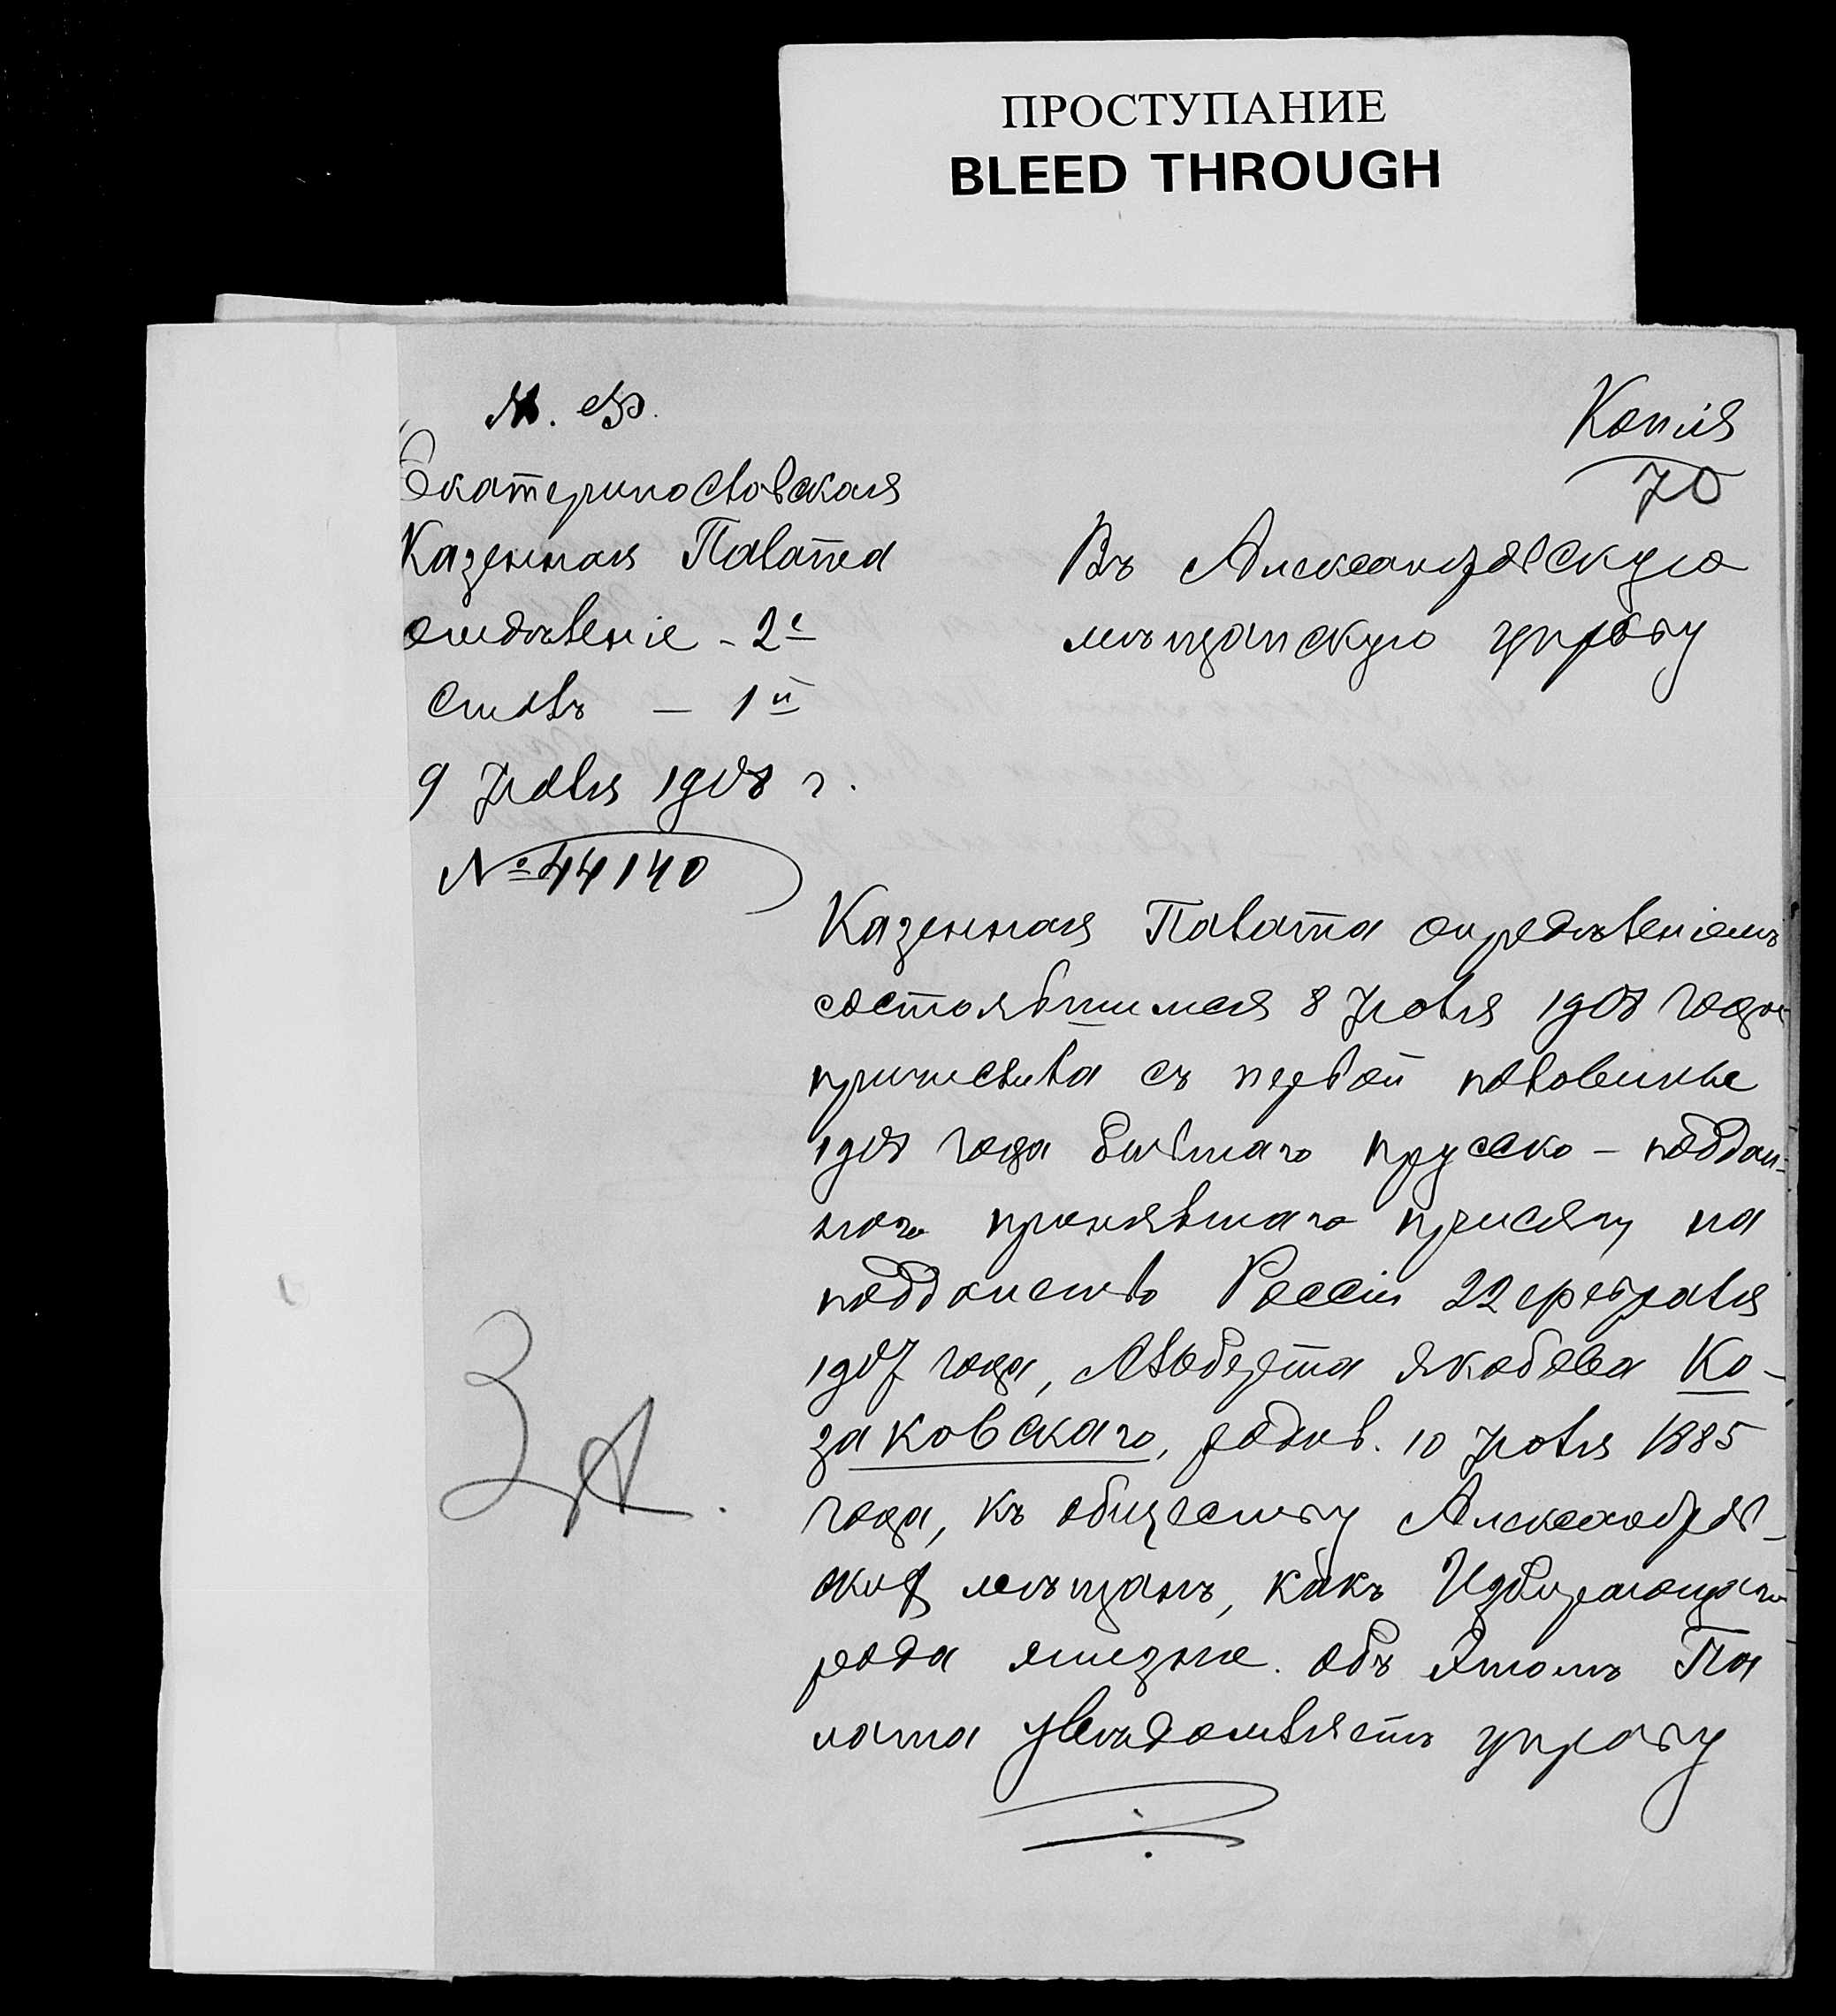 ПРОСТУПАНИЕ
BLEED THROUGH
М. Ф.
Копія
70
Екатеринославская
Казенная Палата
Отдѣленіе - 2е
Столъ — 1й
9 Іюля 1908 г.
№ 44140
Въ Александровскую
мѣщанскую управу
Казенная Палата опредѣленіемъ
состоявшимся 8 Іюля 1908 года
причислила съ первой половины
1908 года бывшаго прусско-поддан-
наго принявшаго присягу на
подданство Россіи 22 февраля
1907 года, Альберта Якобова Ко-
заковскаго, родив. 10 Іюля 1885
года, къ обществу Александров-
скихъ мѣщанъ, какъ избирающаго
рода жизни. Объ этомъ Па
лата увѣдомляетъ управу